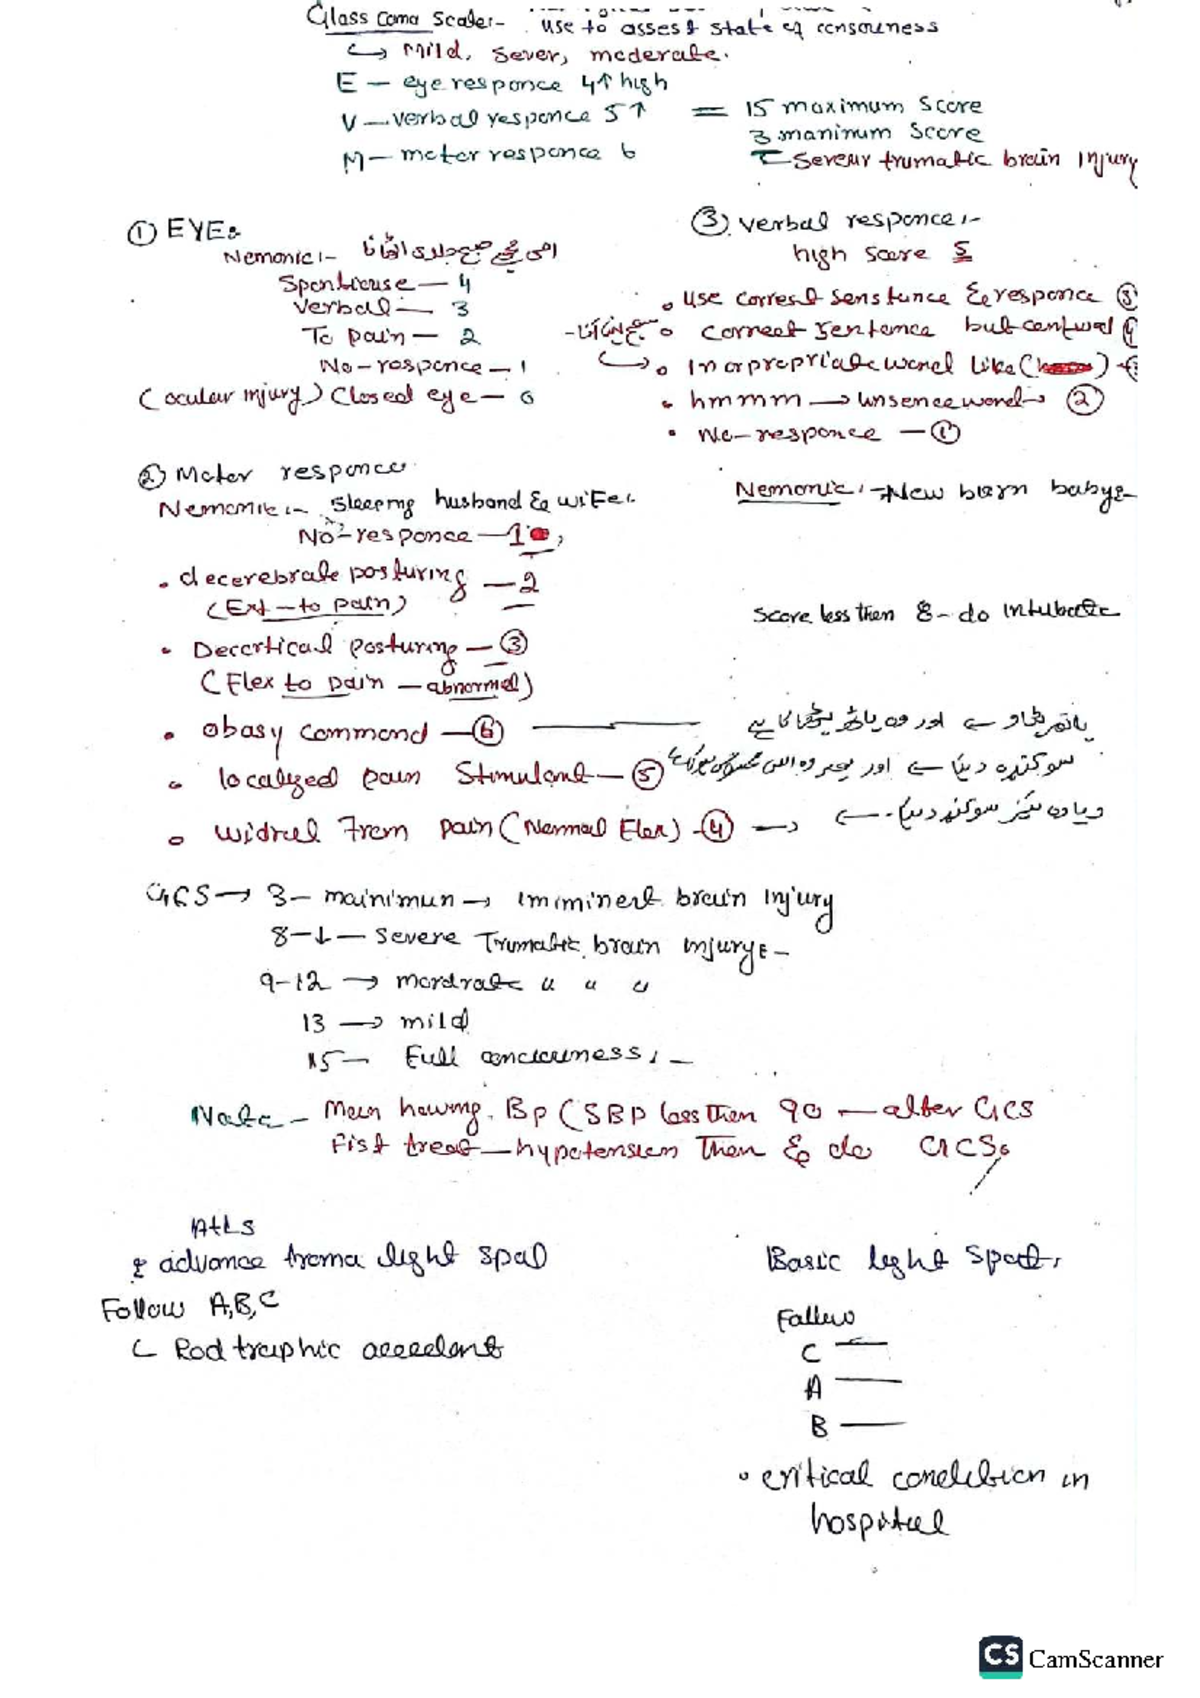 Glass Coma Scale:- use to assest state of consouness
↳ Mild, Sever, mederate.
E — eye responce 4↑ high
V — verbal responce 5↑ = 15 maximum Score
3 maninum Score
M — moter responce 6
Severr trumatic brain injury
① EYE:
Nemonic:- امی مجھے صبح جلدی اٹھانا
Sponticuse — 4
Verbal — 3
To pain — 2
No-responce — 1
(ocular injury) Closed eye — 0
③ Verbal responce:-
high Score 5
• use correst senstunce & responce ⑤
• correct sentence but confused
• Inapropriate word like ( )
• hmmm → unsence word → ②
• No-responce — ①
Nemonic:→ New born baby
② Moter responce
Nemonic:- Sleeping husband & wife:
No-responce — 1
• decerebrate posturing — 2
(Ext — to pain)
• Decortical posturing — ③
(Flex to pain — abnormal)
• obasy commond — ⑥
• localized pain Stimulant — ⑤
• Widrul from pain (Normal Flex) - ④ →
Score less then 8 - do Intubate
GCS → 3 — mainimun → Imiminent brain injury
8 - ↓ — Severe Trumatic brain injury
9-12 → mordrate " " "
13 → mild
15 — Full conciouness:-
Note - Men having Bp (SBP less then 90 — alter GCS
Fist treat — hypotension Then & do GCS
AtLS
advance troma light spot
Follow A,B,C
Rod traphic accedent
Basic light Spot,
Follow
C —
A —
B —
• critical condition in
hospital
CS CamScanner